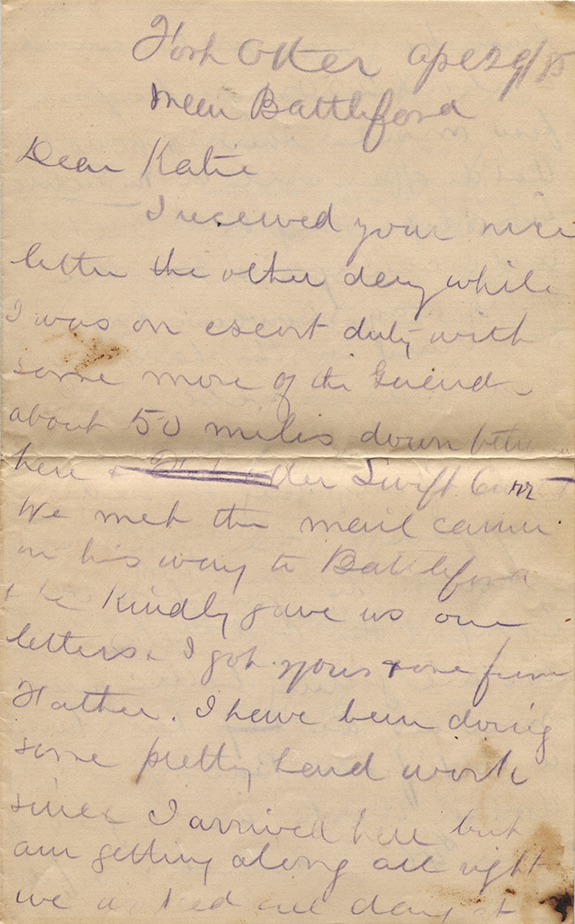 Fort Otter Apl 29/85
near Battleford
Dear Katie
I received your nice
letter the other day while
I was on escort duty with
some more of the Guards
about 50 miles down
here & Swift
We met the mail carrier
on his way to Battleford
& he kindly gave us our
letters. I got yours & one from
Father. I have been doing
some pretty hard work
since I arrived here but
am getting along all right
we all day